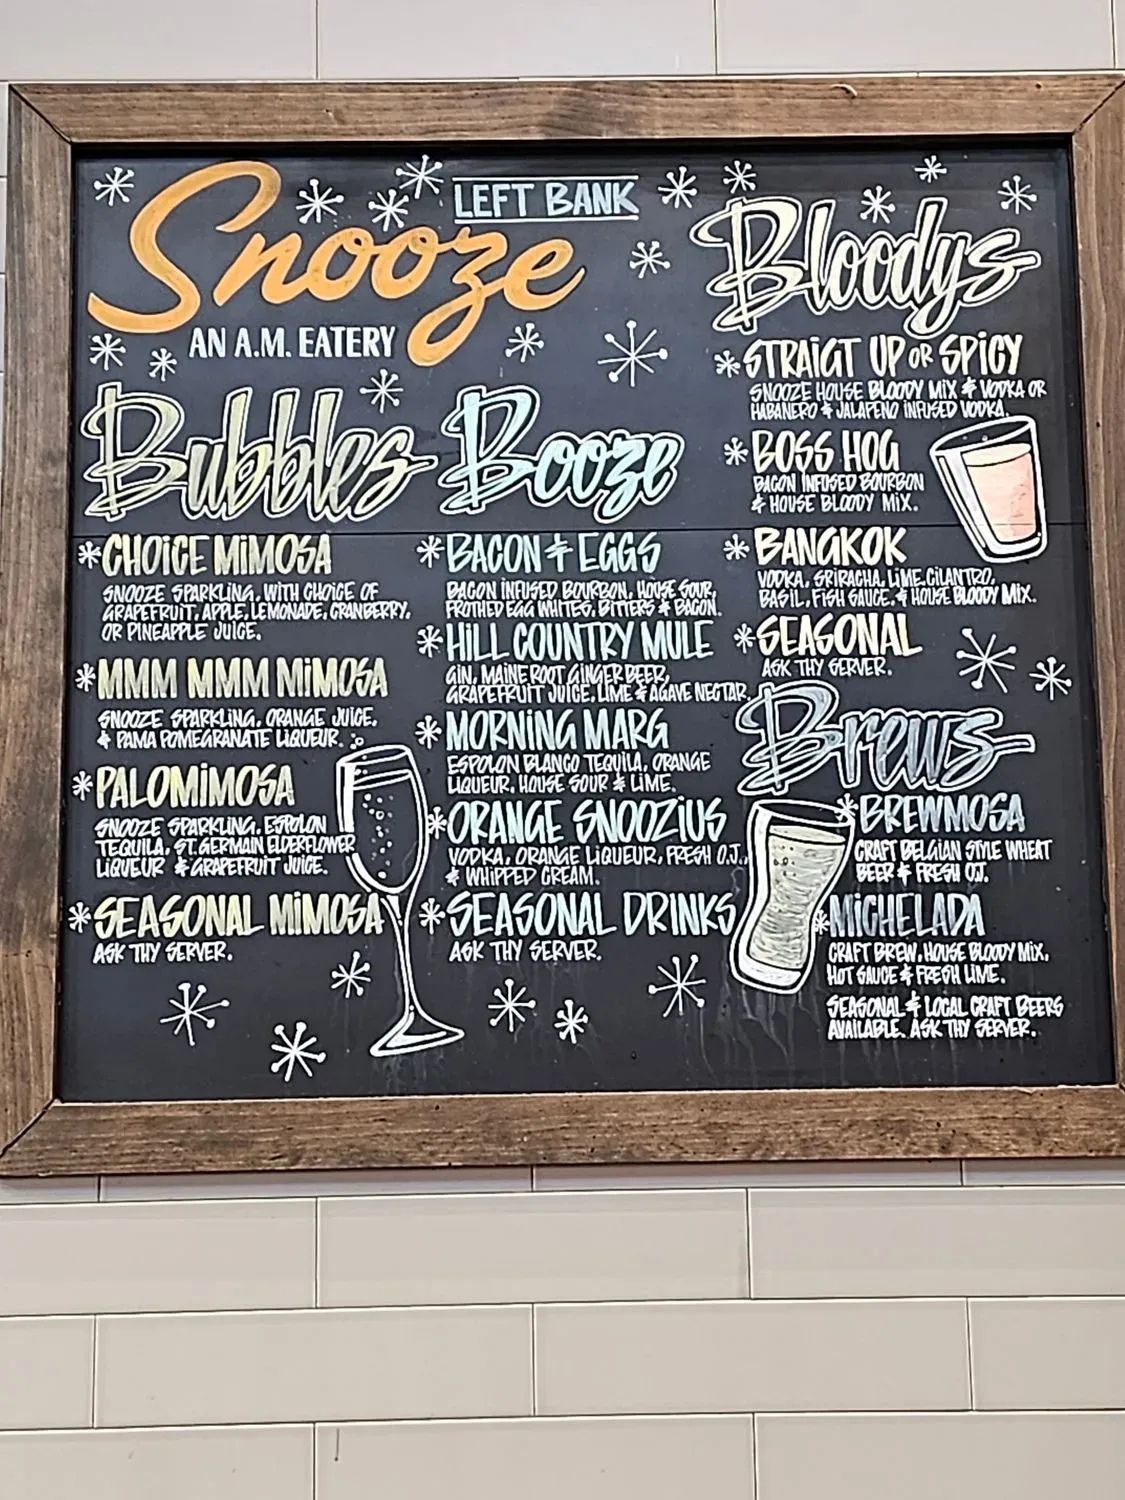 LEFT BANK
Snooze
AN A.M. EATERY
Bubbles
*CHOICE MIMOSA
SNOOZE SPARKLING, WITH CHOICE OF
GRAPEFRUIT, APPLE, LEMONADE, CRANBERRY,
OR PINEAPPLE JUICE.
*MMM MMM MIMOSA
SNOOZE SPARKLING, ORANGE JUICE,
& PAMA POMEGRANATE LIQUEUR.
*PALOMIMOSA
SNOOZE SPARKLING, ESPOLON
TEQUILA, ST. GERMAIN ELDERFLOWER
LIQUEUR & GRAPEFRUIT JUICE.
*SEASONAL MIMOSA
ASK THY SERVER.
Booze
*BACON & EGGS
BACON INFUSED BOURBON, HOUSE SOUR,
FROTHED EGG WHITES, BITTERS & BACON.
*HILL COUNTRY MULE
GIN, MAINE ROOT GINGER BEER,
GRAPEFRUIT JUICE, LIME & AGAVE NECTAR.
*MORNING MARG
ESPOLON BLANCO TEQUILA, ORANGE
LIQUEUR, HOUSE SOUR & LIME.
*ORANGE SNOOZIUS
VODKA, ORANGE LIQUEUR, FRESH O.J.,
& WHIPPED CREAM.
*SEASONAL DRINKS
ASK THY SERVER.
Bloodys
*STRAIGT UP OR SPICY
SNOOZE HOUSE BLOODY MIX & VODKA OR
HABANERO & JALAPENO INFUSED VODKA.
*BOSS HOG
BACON INFUSED BOURBON
& HOUSE BLOODY MIX.
*BANGKOK
VODKA, SRIRACHA, LIME, CILANTRO,
BASIL, FISH SAUCE, & HOUSE BLOODY MIX.
*SEASONAL
ASK THY SERVER.
Brews
*BREWMOSA
CRAFT BELGIAN STYLE WHEAT
BEER & FRESH O.J.
*MICHELADA
CRAFT BREW, HOUSE BLOODY MIX,
HOT SAUCE & FRESH LIME.
SEASONAL & LOCAL CRAFT BEERS
AVAILABLE. ASK THY SERVER.